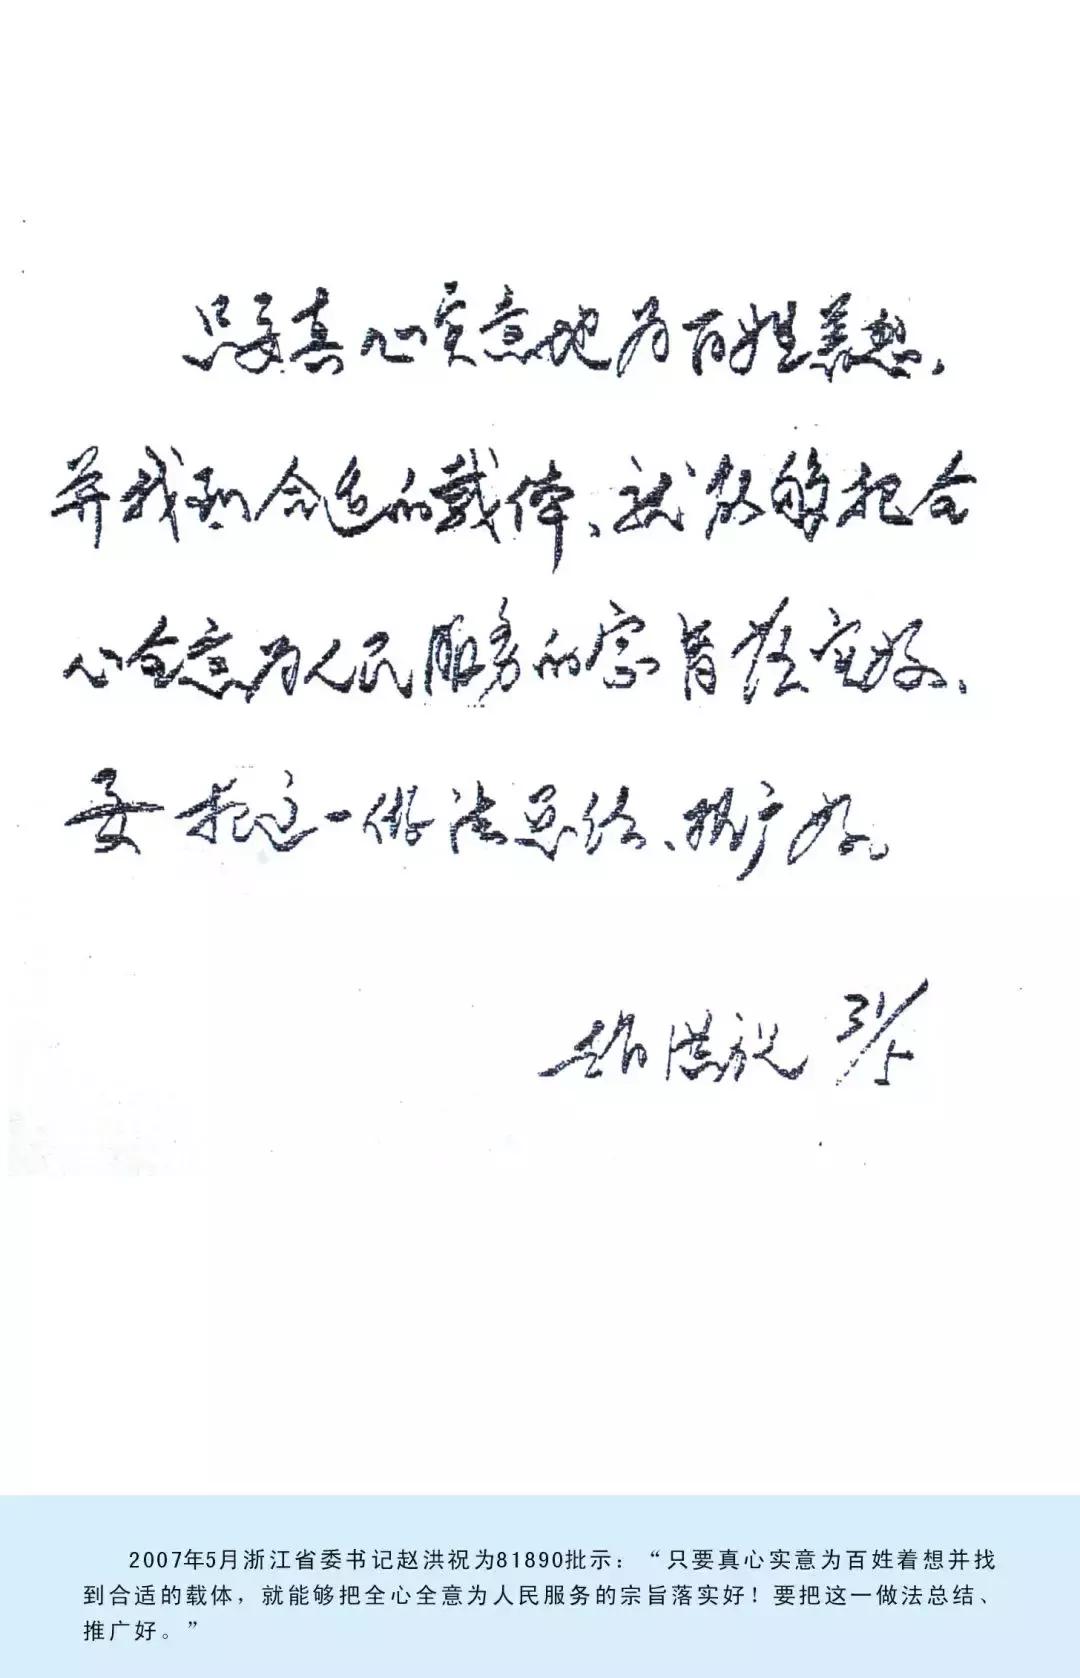 只要真心实意地为百姓着想，
并找到合适的载体、就能够把全
心全意为人民服务的宗旨落实好、
要把这一做法总结、推广好。
赵洪祝 31/5
2007年5月浙江省委书记赵洪祝为81890批示：“只要真心实意为百姓着想并找
到合适的载体，就能够把全心全意为人民服务的宗旨落实好！要把这一做法总结、
推广好。”